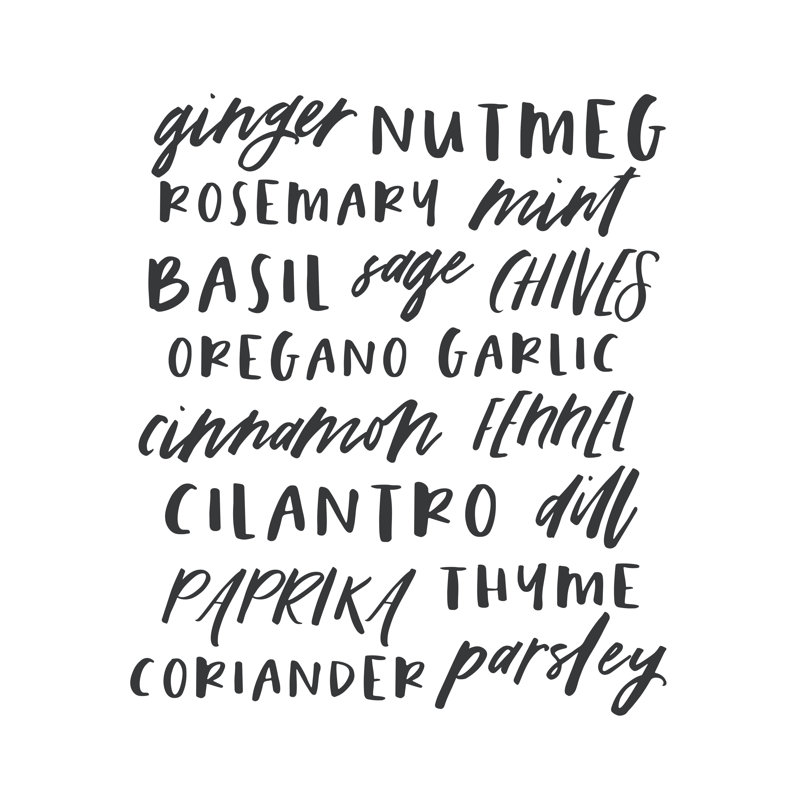 ginger NUTMEG
ROSEMARY mint
BASIL sage CHIVES
OREGANO GARLIC
cinnamon FEnnEl
CILANTRO dill
PAPRIKA THYME
CORIANDER parsley